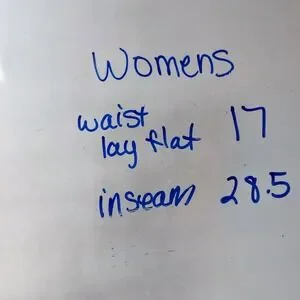 Womens
waist
lay flat 17
inseam 28.5